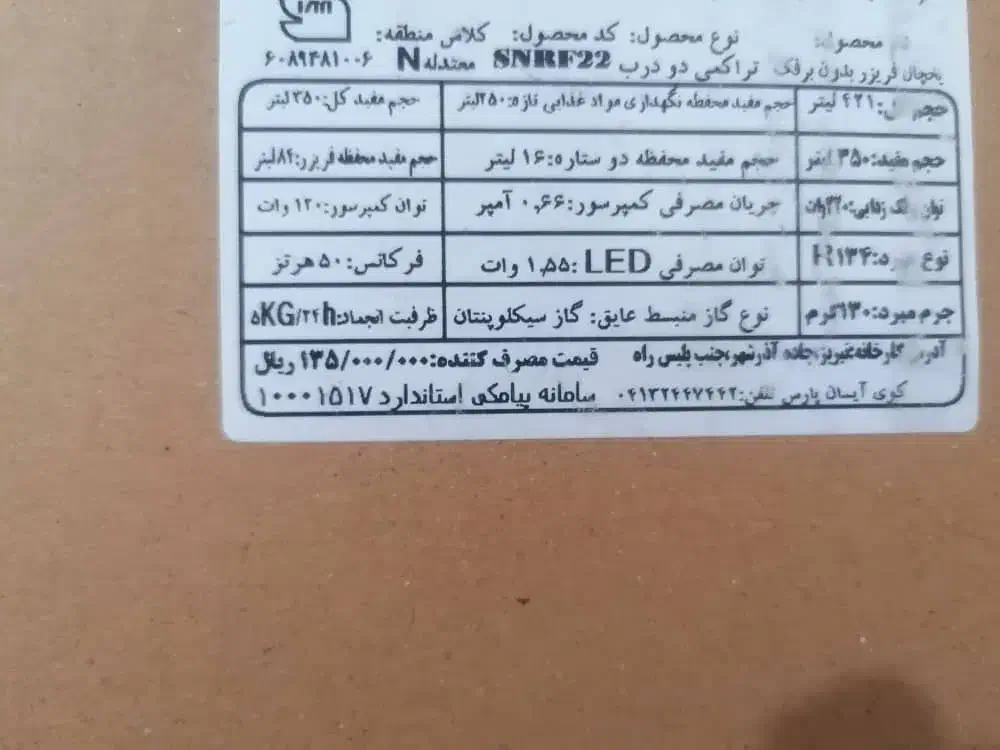 محصول: نوع محصول: کد محصول: کلاس منطقه:
یخچال فریزر بدون برفک تراکمی دو درب SNRF22 معتدله N ۶۰۸۹۴۸۱۰۰۶
حجم کل: ۴۲۱ لیتر حجم مفید محفظه نگهداری مواد غذایی تازه: ۲۵۰لیتر حجم مفید کل: ۳۵۰لیتر
حجم مفید: ۳۵۰ لیتر حجم مفید محفظه دو ستاره: ۱۶ لیتر حجم مفید محفظه فریزر: ۸۴لیتر
توان زدایی: ۲۲۰وات جریان مصرفی کمپرسور: ۰,۶۶ آمپر توان کمپرسور: ۱۲۰ وات
نوع مبرد: R۱۳۴ توان مصرفی LED: ۱,۵۵ وات فرکانس: ۵۰ هرتز
جرم مبرد: ۱۳۰گرم نوع گاز منبسط عایق: گاز سیکلوپنتان ظرفیت انجماد: ۵KG/۲۴h
آدرس کارخانه: تبریز، جاده آذرشهر، جنب پلیس راه قیمت مصرف کننده: ۱۳۵/۰۰۰/۰۰۰ ریال
کوی آیسان پارس تلفن: ۰۴۱۳۲۴۴۷۴۴۲ سامانه پیامکی استاندارد ۱۰۰۰۱۵۱۷